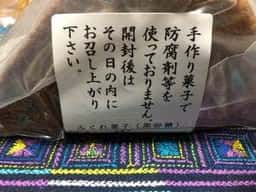 手作り菓子で
防腐剤等を
使っておりません。
開封後は
その日の内に
お召し上がり
下さい。
ふくれ菓子（黒砂糖）